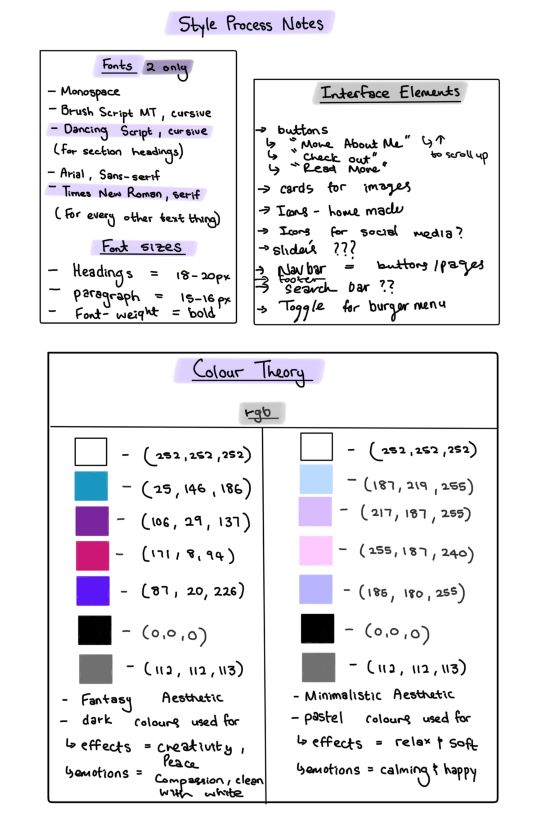 Style Process Notes
Fonts 2 only
- Monospace
- Brush Script MT, cursive
- Dancing Script, cursive
(for section headings)
- Arial, Sans-serif
- Times New Roman, serif
(For every other text thing)
Font sizes
- Headings = 18-20px
- paragraph = 15-16px
- Font-weight = bold
Interface Elements
→ buttons
↳ "More About Me" ↳ ↑
↳ "Check out" to scroll up
↳ "Read More"
→ cards for images
→ Icons - home made
→ Icons for social media?
→ sliders ???
→ Navbar = buttons/pages
→ footer
→ search bar ??
→ Toggle for burger menu
Colour Theory
rgb
- (252,252,252)
- (25,146,186)
- (106,29,137)
- (171,8,94)
- (87,20,226)
- (0,0,0)
- (112,112,113)
- Fantasy Aesthetic
- dark colours used for
↳ effects = creativity,
Peace
↳ emotions = Compassion, clean
with white
- (252,252,252)
- (187,219,255)
- (217,187,255)
- (255,187,240)
- (185,180,255)
- (0,0,0)
- (112,112,113)
- Minimalistic Aesthetic
- pastel colours used for
↳ effects = relax & soft
↳ emotions = calming & happy